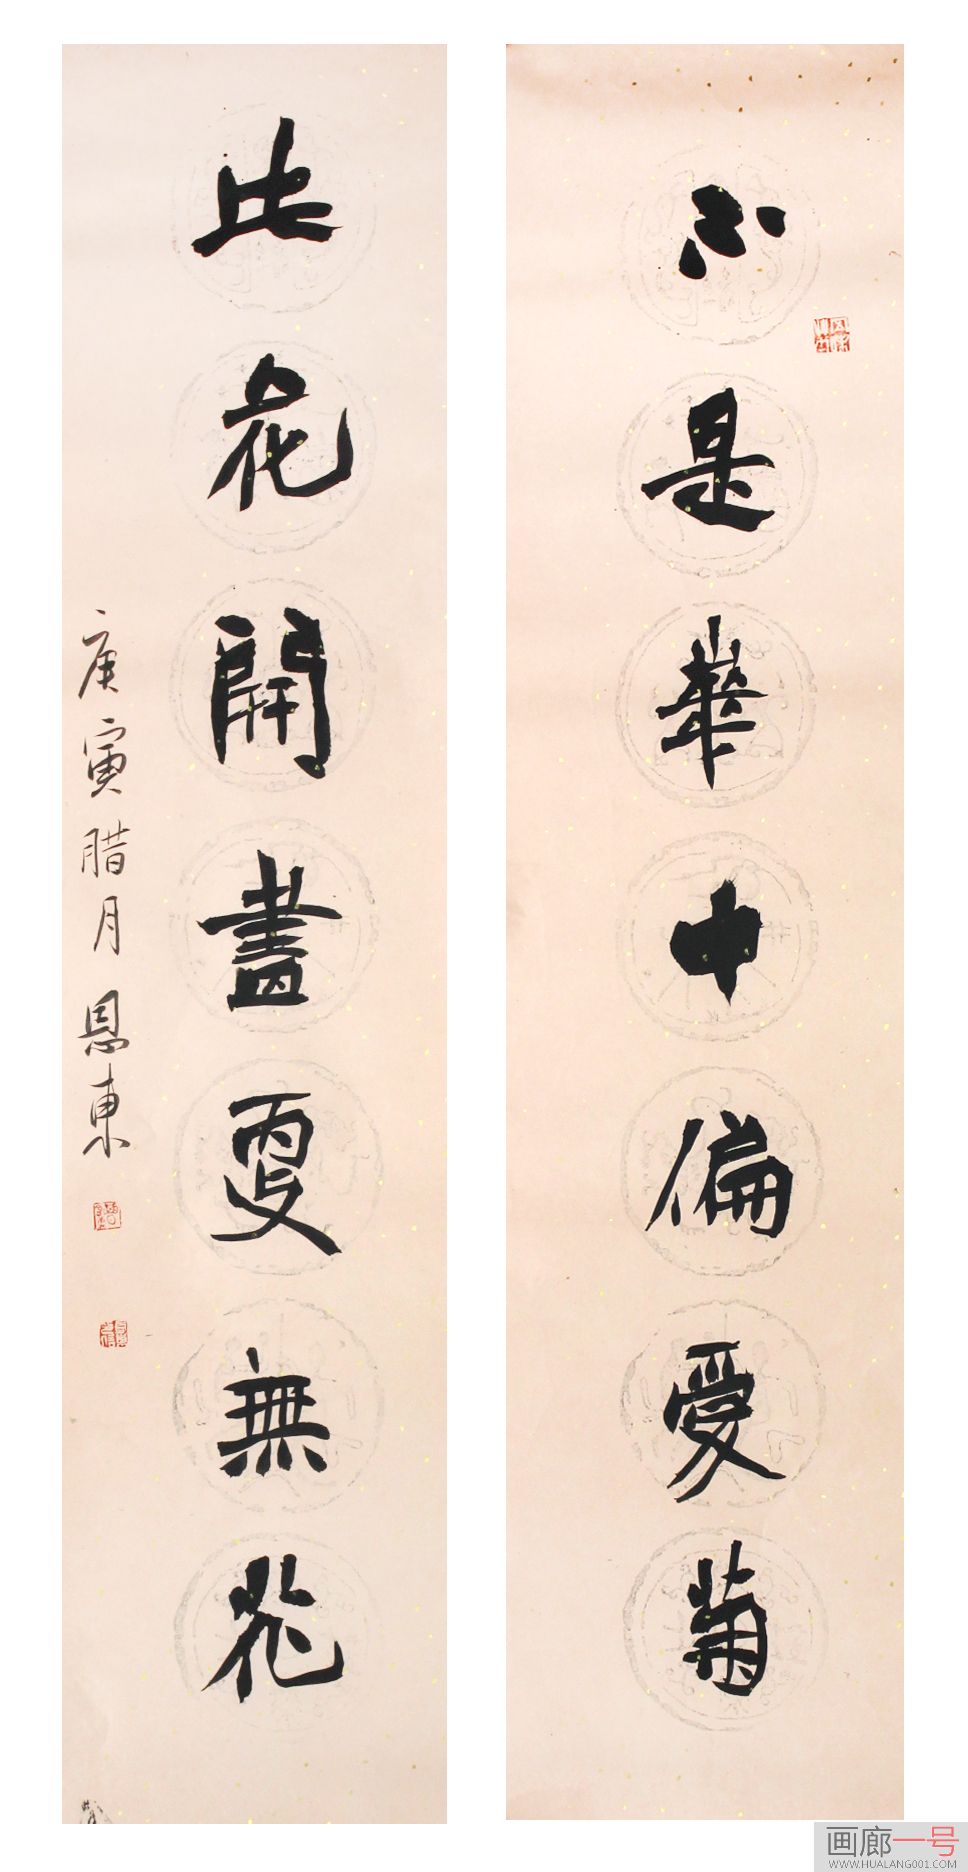 不是華中偏愛菊
此花開盡更無花
庚寅腊月恩東
画廊一号
WWW.HUALANG001.COM